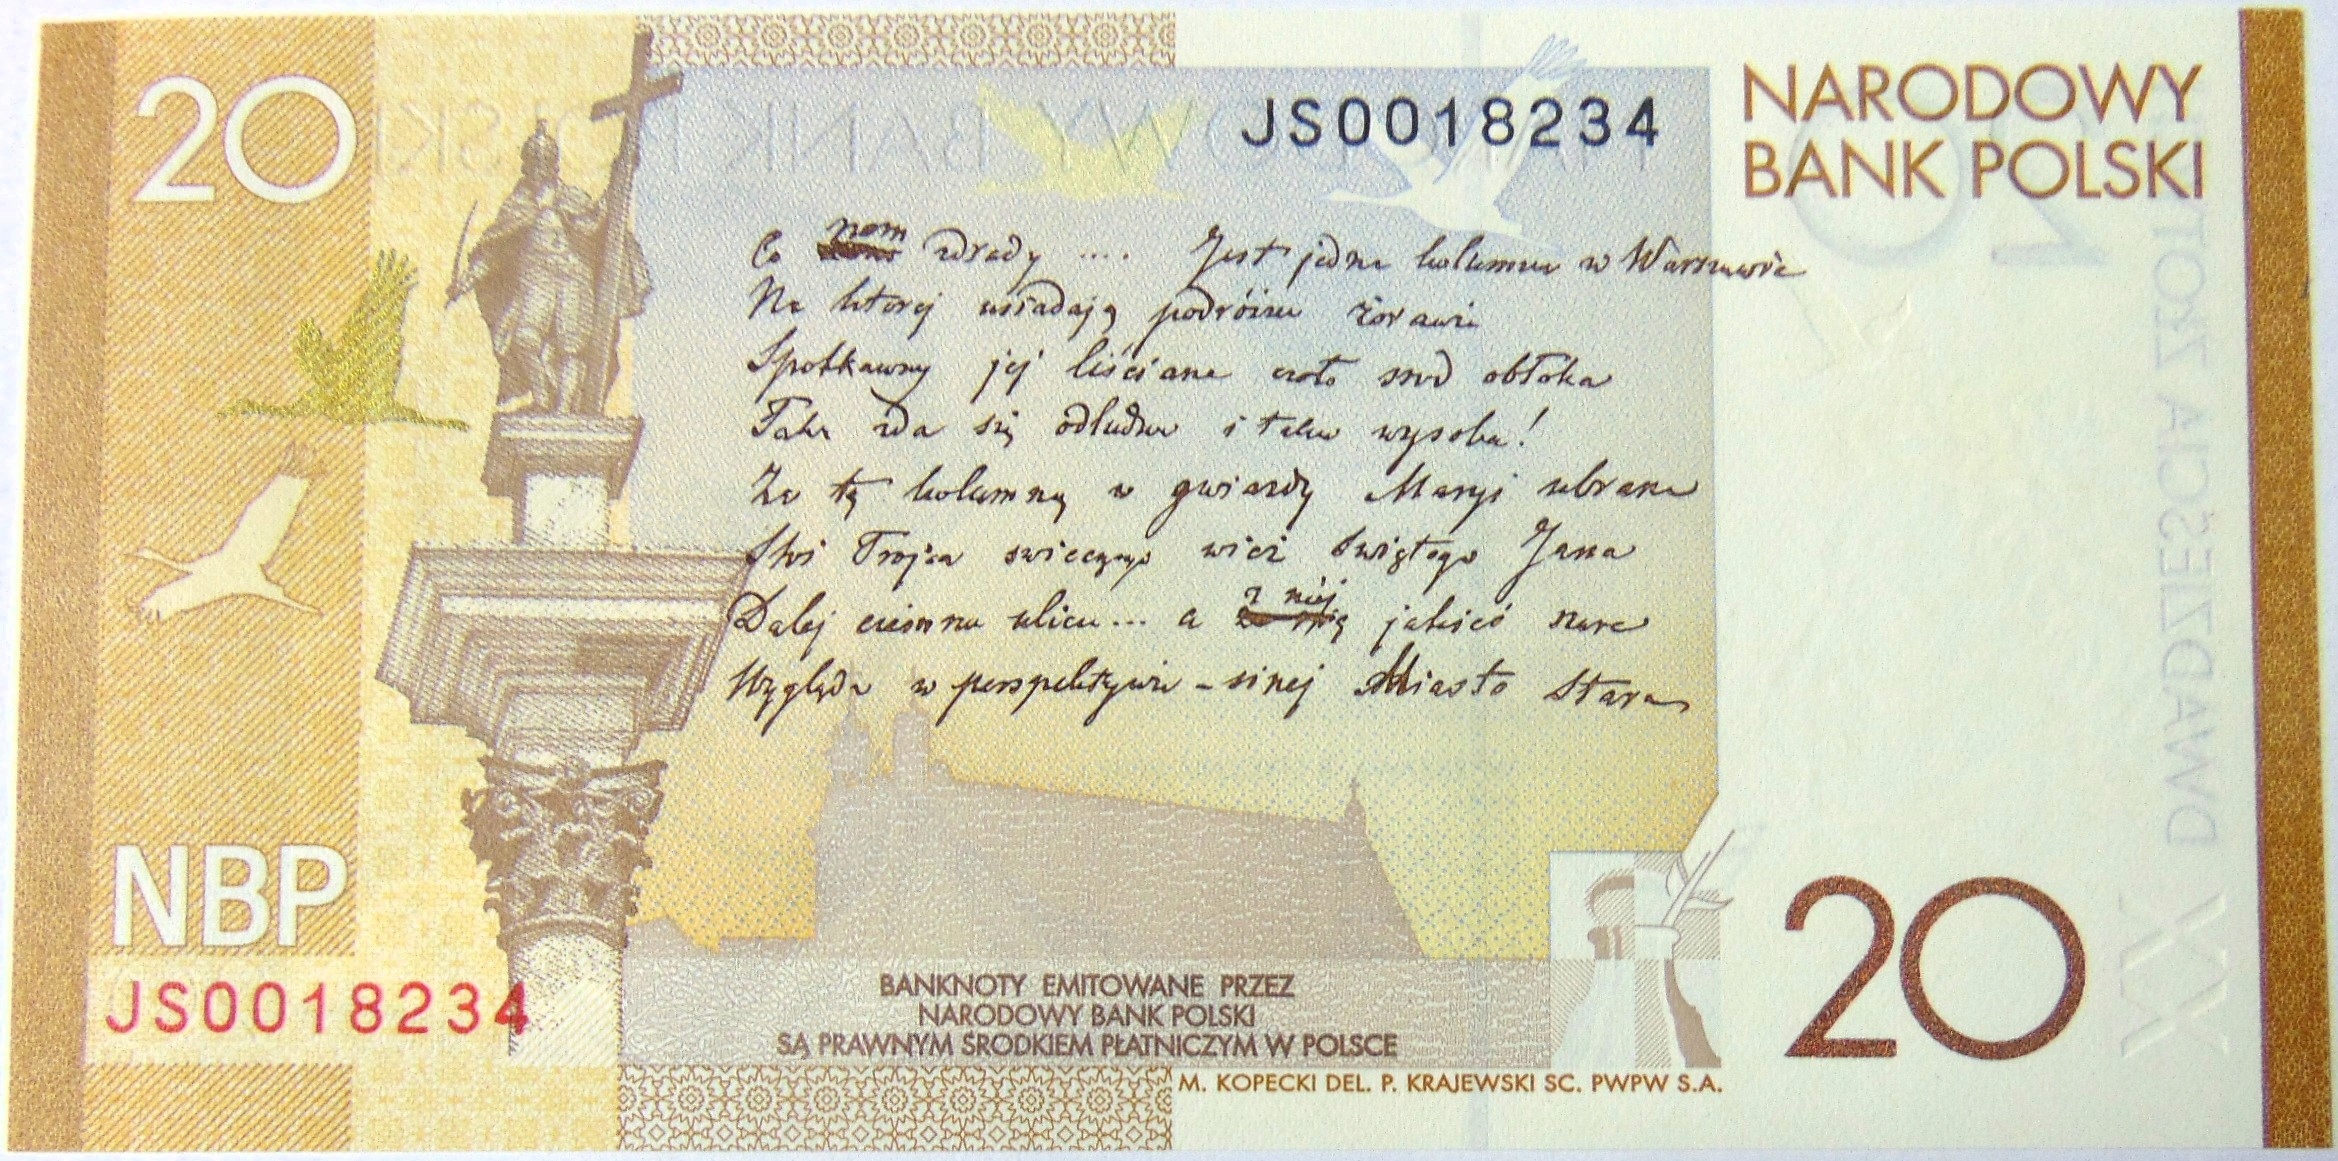 20
JS0018234
NARODOWY
BANK POLSKI
Co nam zdrady .... Jest jedna kolumna w Warszawie
Na ktorej usiadają podróżne żorawie
Spotkawszy jej liściane czoło sród obłoka
Taka zda się odludna i taka wysoka!
Za tą kolumną w gwiazdy Maryi ubrana
Stoi Trojca swiecących wież Świętego Jana
Dalej ciemna ulica... a z niéj jakieś szare
Wygląda w perspektywie - sinej Miasto Stare
NBP
JS0018234
BANKNOTY EMITOWANE PRZEZ
NARODOWY BANK POLSKI
SĄ PRAWNYM ŚRODKIEM PŁATNICZYM W POLSCE
20
M. KOPECKI DEL. P. KRAJEWSKI SC. PWPW S.A.